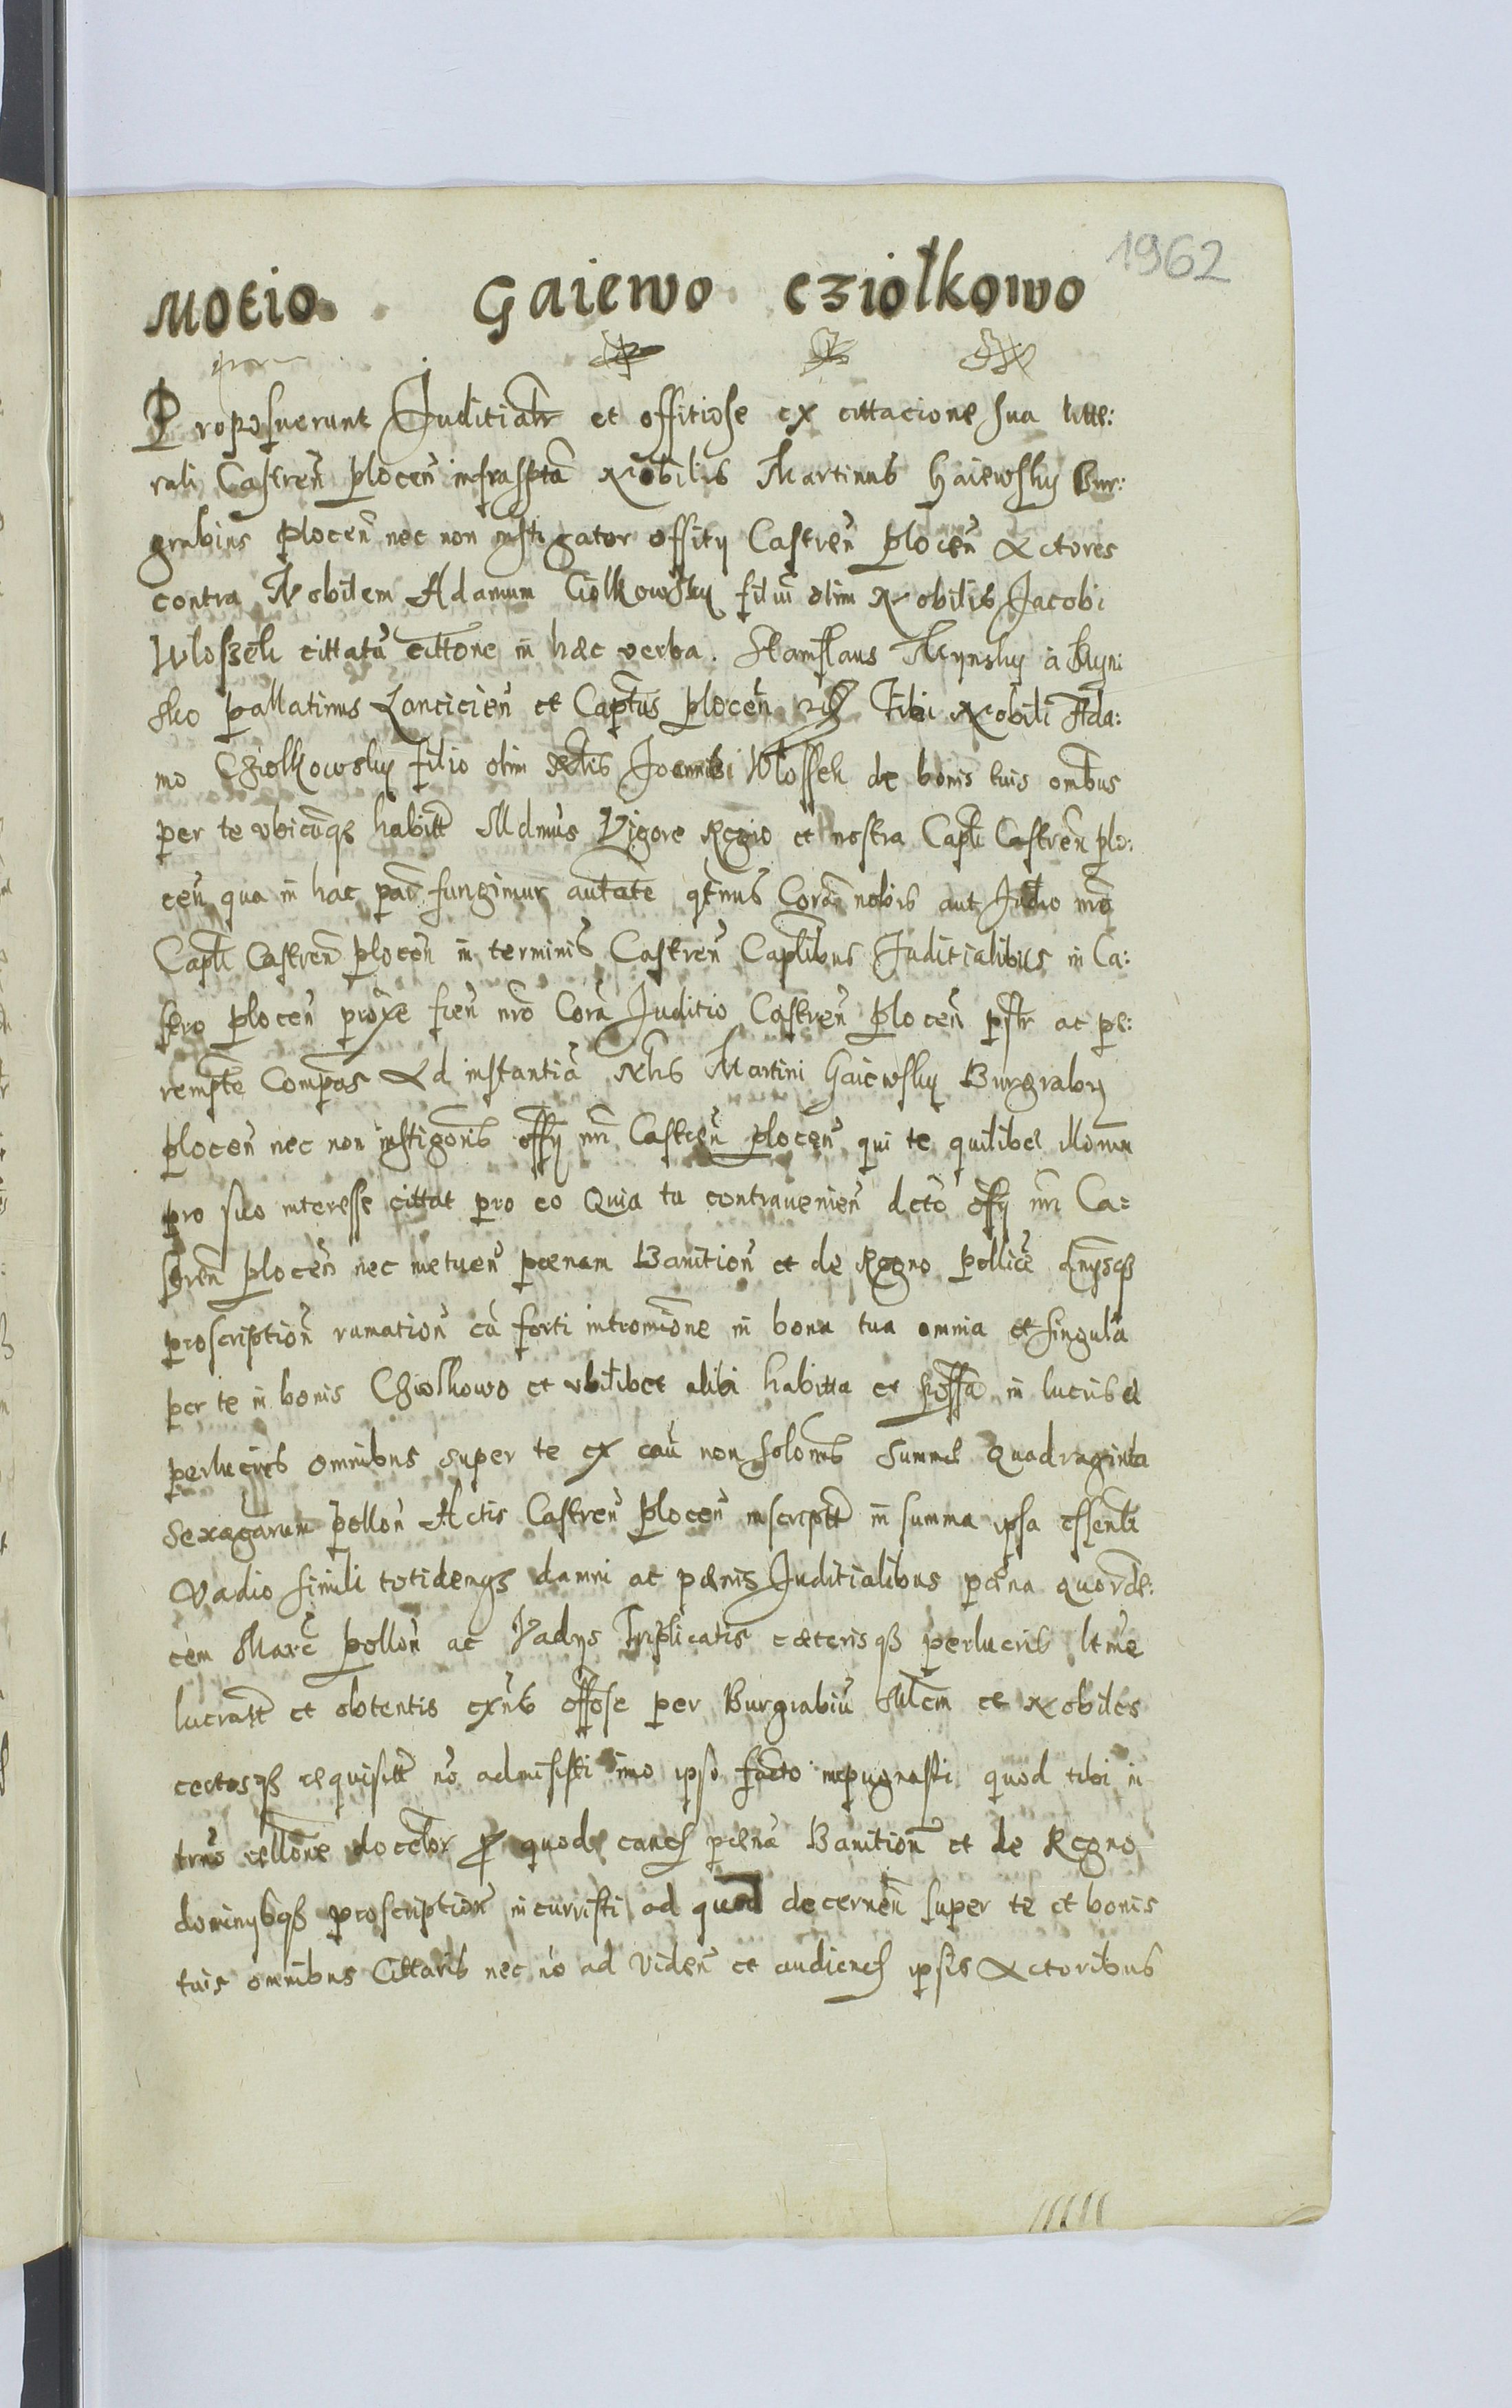 1962
Motio Gaiewo Cziołkowo
Proposuerunt Juditialr et offitiose ex cittacione sua litte:
rali Castren plocen infrasptā Nobilis Martinus Gaiewsky Bur:
grabius plocen nec non instigator offity Castren plocen Actores
contra Nobilem Adamum Ciolkowsky filiū olim Nobilis Jacobi
Wloszek cittatū cittone in haec verba. Stanislaus Mynsky a Myni
sko pallatinus Lancicien et Captus plocen Tibi Nobili Ada:
mo Cziolkowsky filio olim Nblis Wlossek de bonis tuis omibus
per te vbicūqz habitt Mdmus Vigore Regio et nostra Capli Castren plo:
cen qua in hac parte fungimur auttate qtnus Corā nobis aut Judio nro
Capli Castren plocen in terminis Castren Caplibus Juditialibus in Ca:
stro plocen proxe fien nro Corā Juditio Castren plocen pstr ac pe:
rempte Compas Ad instantiā Nblis Martini Gaiewsky Burgraby
plocen nec non instigoris offy nri Castren plocen qui te quilibet illorum
pro suo interesse cittat pro eo Quia tu contravenien dcto offy nri Ca:
stren plocen nec metuen paenam Banition et de Regno pollice
proscription rumation cū forti intromione in bona tua omnia et singula
per te in bonis Cziolkowo et vbilibet alibi habitta et possa in lucris et
perlucris omnibus super te ex cau non solonis summae Quadraginta
Sexagarum pollon Actis Castren plocen inscriptt in summa ipsa essenti
Vadio simili totidemqz damni ac paenis Juditialibus paena quorde:
cem Marc pollon ac Vadys Triplicatis caeterisqz perlucris ltme
lucratt et obtentis exnts offose per Burgrabiū et Nobiles
certosqz requisitt nō admisisti imo ipso facto impugnasti quod tibi in
trno rellone docebor quod paenā Banition et de Regno
dominysqz proscription incurristi ad quod decernen super te et bonis
tuis omnibus Cittaris nec nō ad Viden et audiend ipsis Actoribus